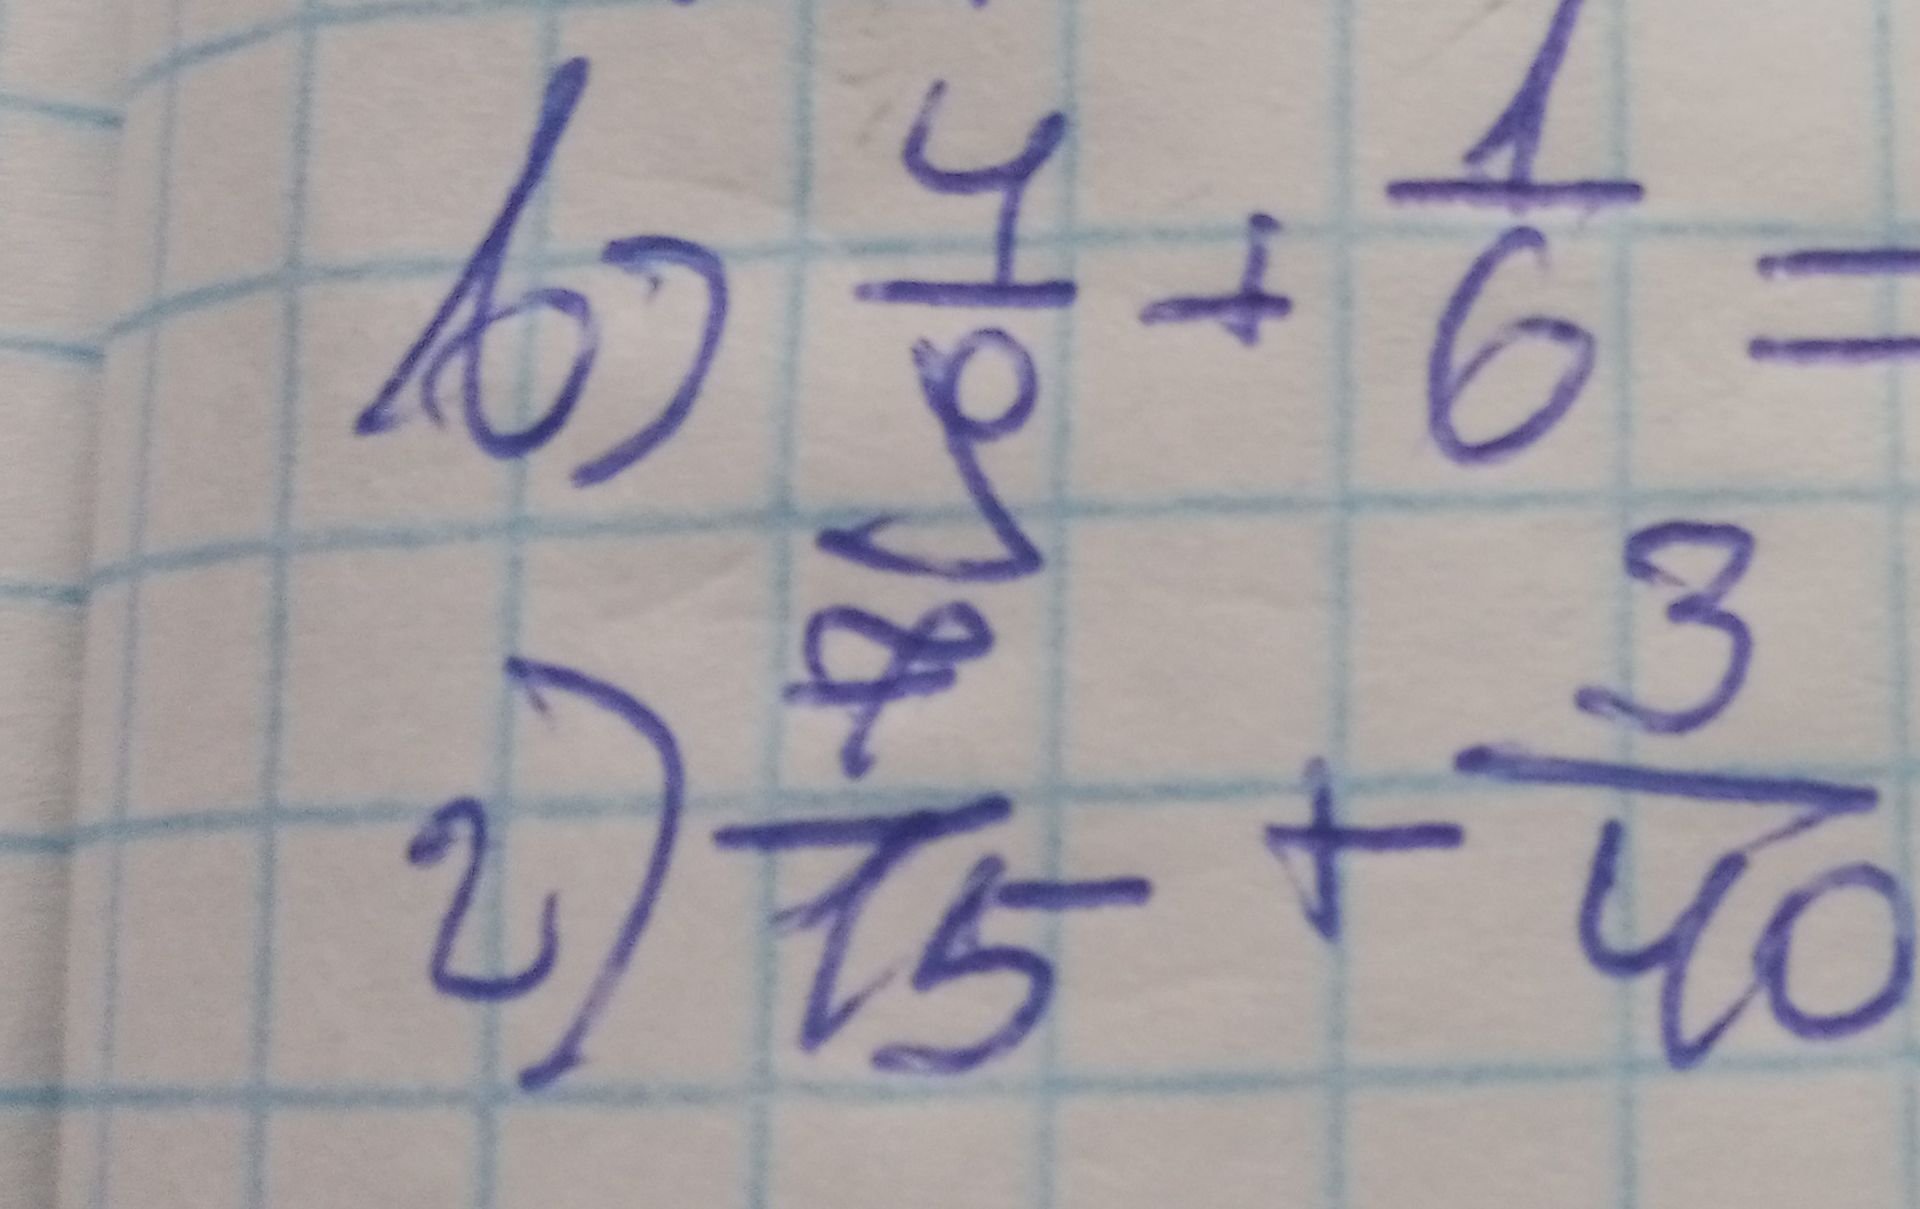 в) 4/9 + 1/6 =
г) 7/15 + 3/40